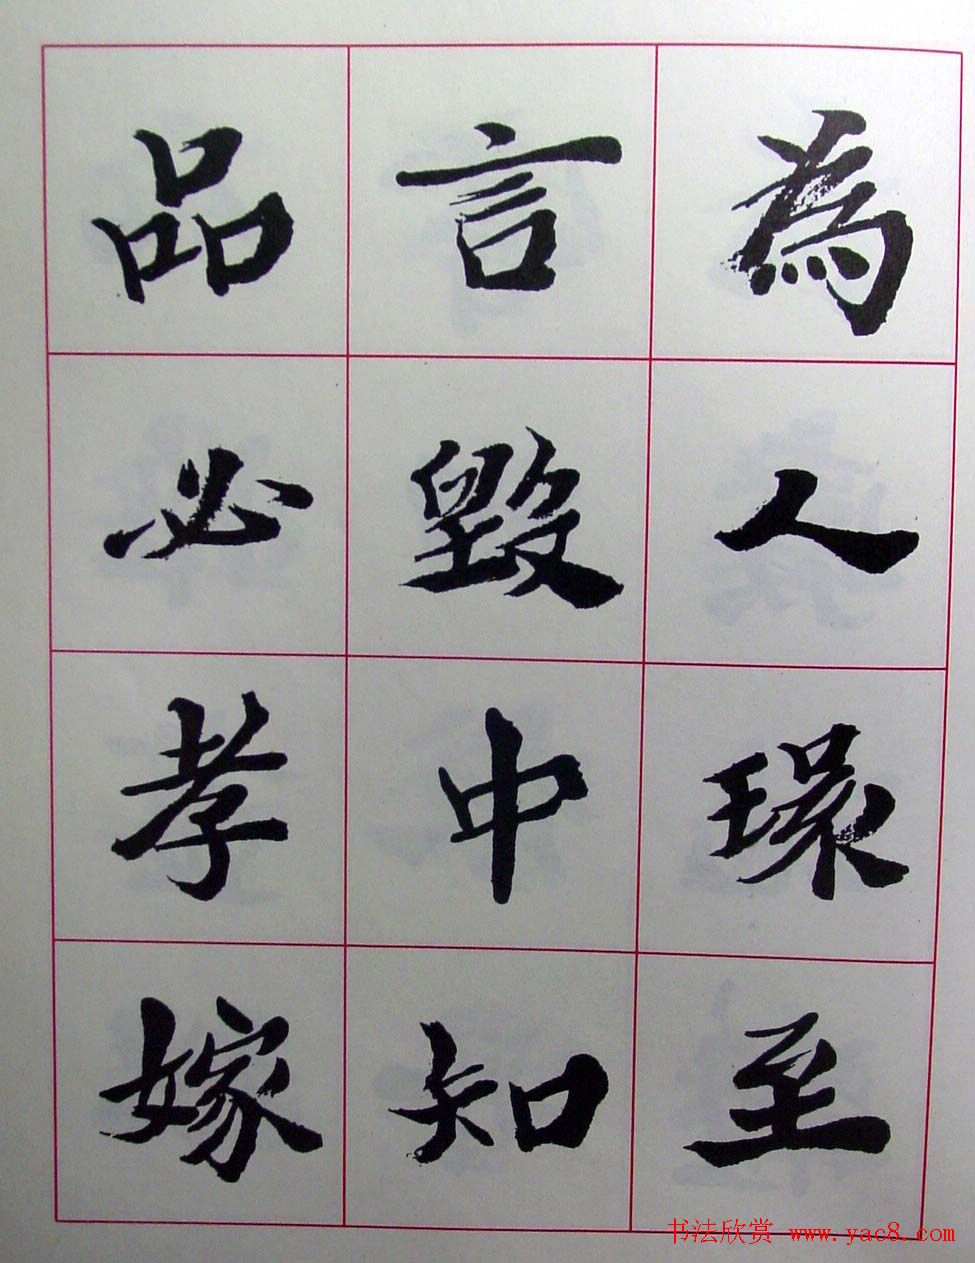 為人環至
言毀中知
品必孝嫁
书法欣赏 www.yac8.com